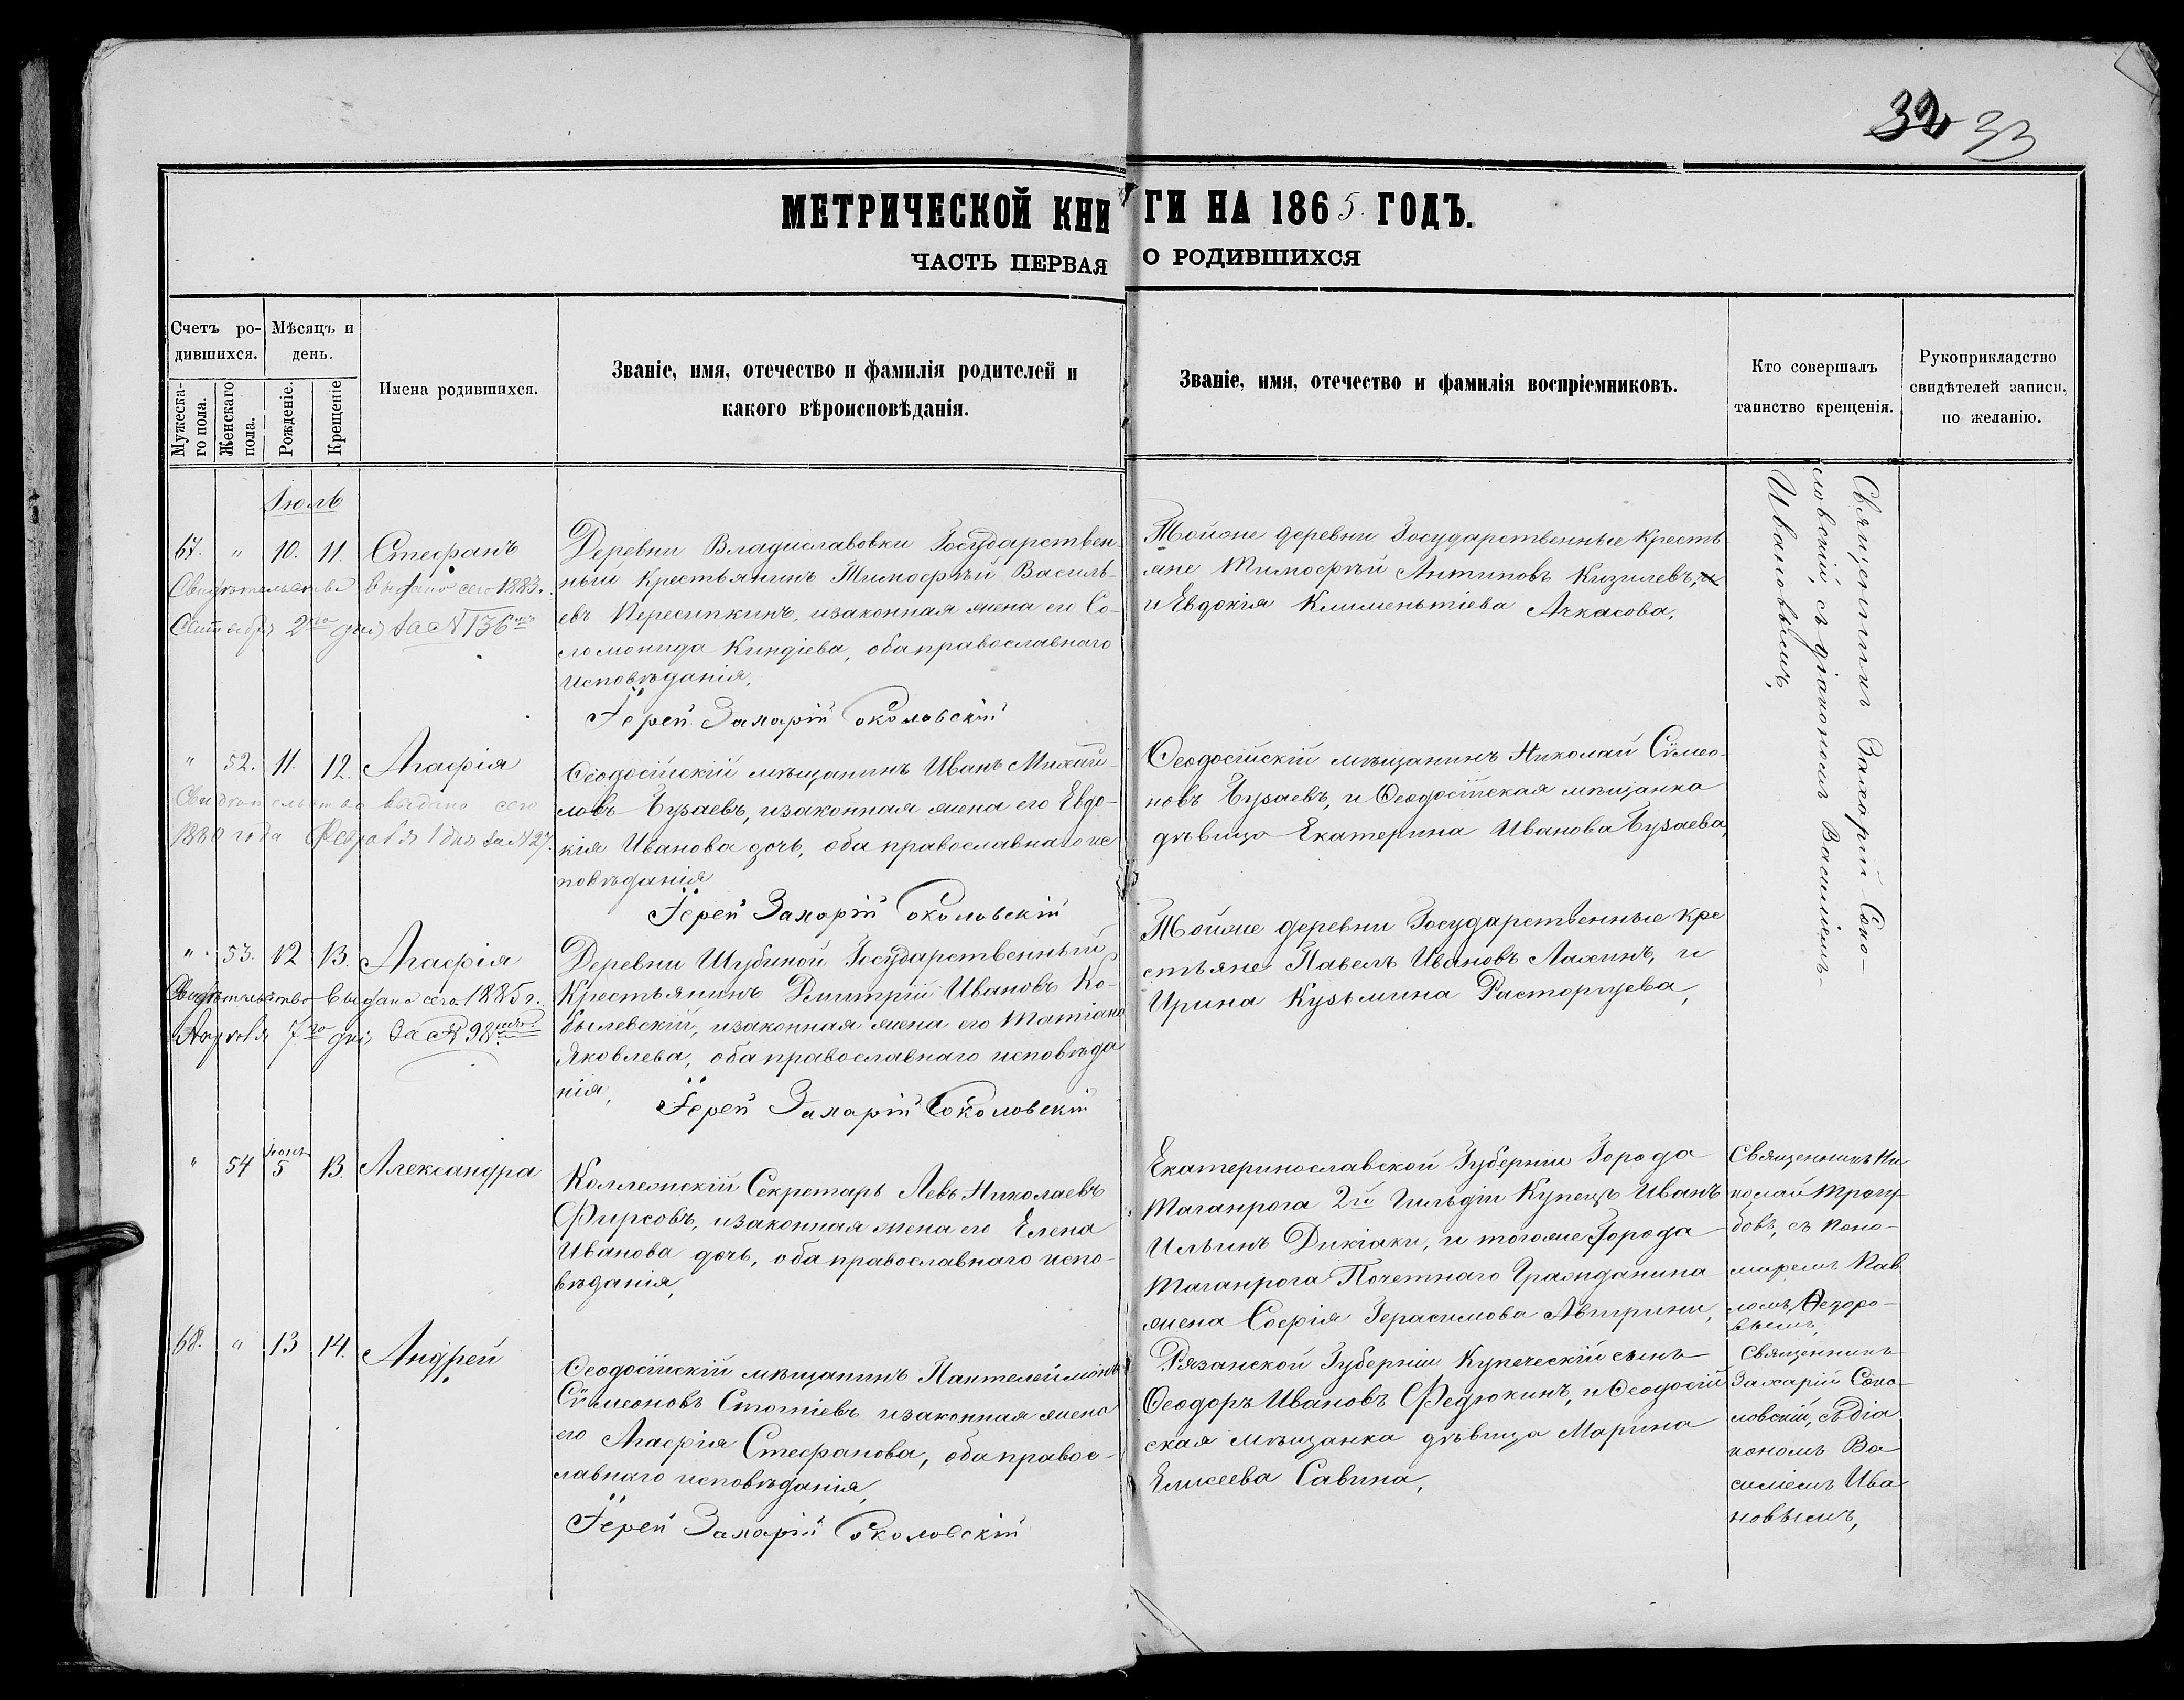 32 33
МЕТРИЧЕСКОЙ КНИГИ НА 1865. ГОДЪ.
ЧАСТЬ ПЕРВАЯ О РОДИВШИХСЯ
Счетъ ро-
дившихся.
Мужеска-
го пола.
Женскаго
пола.
Мѣсяцъ и
день.
Рожденіе.
Крещеніе
Имена родившихся.
Званіе, имя, отечество и фамилія родителей и
какого вѣроисповѣданія.
Званіе, имя, отечество и фамилія воспріемниковъ.
Кто совершалъ
таинство крещенія.
Рукоприкладство
свидѣтелей записи,
по желанію.
Іюль
67. " 10. 11. Стефанъ
Свидѣтельство выдано сего 1883 г.
Сентября 2го дня за № 136мъ
Деревни Владиславовки Государствен-
ный Крестьянинъ Тимофѣй Василь-
евъ Пересипкинъ, изаконная жена его Со-
ломонида Киндіева, оба православнаго
исповѣданія,
Іерей Захарій Соколовскій
Тойоже деревни Государственные Кресть
яне Тимофѣй Антиповъ Кизилевъ, и
и Евдокія Климентіева Ачкасова,
Священникъ Захарій Соко-
ловскій, съ діакономъ Василіемъ
Ивановымъ,
" 52. 11. 12. Агафія
Свидѣтельство выдано сего
1880 года Февраля 1 дня за № 27.
Ѳеодосійскій мѣщанинъ Иванъ Михай-
ловъ Бузаевъ, изаконная жена его Евдо-
кія Иванова дочь, оба православнаго ис
повѣданія
Іерей Захарій Соколовскій
Ѳеодосійскій мѣщанинъ Николай Сѵмео-
новъ Бузаевъ, и Ѳеодосійская мѣщанка
дѣвица Екатерина Иванова Бузаева,
" 53. 12 13. Агафія
Свидѣтельство выдано сего 1885 г.
7го дня за № 98мъ
Деревни Шубиной Государственный
Крестьянинъ Димитрій Ивановъ Ко-
былевскій, изаконная жена его Матіана
Яковлева, оба православнаго исповѣда
нія,
Іерей Захарій Соколовскій
Тойже деревни Государственные кре
стьяне Павелъ Ивановъ Лахинъ, и
Ирина Кузьмина Расторгуева,
" 54 Іюнь 5 13. Александра
Коллежскій Секретарь Левъ Николаевъ
Фирсовъ, изаконная жена его Елена
Иванова дочь, оба православнаго испо-
вѣданія,
Екатеринославской Губерніи Города
Таганрога 2й Гильдіи Купецъ Иванъ
Ильинъ Дикіаки, и тогоже Города
Таганрога Почетнаго Гражданина
жена Софія Герасимова Авгерини,
Священникъ Ни
колай
бовъ, съ поно-
маремъ Пав
ломъ Ѳедоро-
вымъ,
68. " 13 14. Андрей
Ѳеодосійскій мѣщанинъ Пантелеймонъ
Сѵмеоновъ Стотіевъ изаконная жена
его Агафія Стефанова, оба правос-
лавнаго исповѣданія,
Іерей Захарій Соколовскій
Рязанской Губерніи Купеческій сынъ
Ѳеодоръ Ивановъ Федюкинъ, и Ѳеодосій
ская мѣщанка дѣвица Марина
Елисеева Савина,
Священникъ
Захарій Соко-
ловскій, съ діа
кономъ Ва-
силіемъ Ива
новымъ,